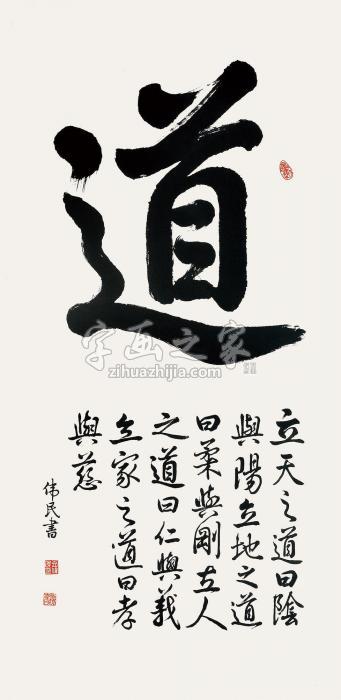 道
字画之家
zihuazhijia.com
立天之道曰陰
與陽立地之道
曰柔與剛立人
之道曰仁與義
立家之道曰孝
與慈
伟民書